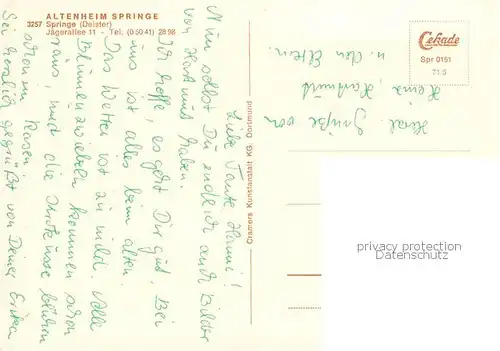 ALTENHEIM SPRINGE
3257 Springe (Deister)
Jägerallee 11 - Tel. (0 50 41) 28 98
Cekade
Spr 0151
71.5
Cramers Kunstanstalt KG. Dortmund
Liebe Tante Hanni!
Nun sollst Du endlich auch Bilder
von Hartmut haben.
Ich hoffe, es geht Dir gut. Bei
uns ist alles beim alten.
Das Wetter ist zu mild. Alle
Blumenzwiebeln kommen schon
raus, und die blühen
schon im Rasen.
Sei herzlich gegrüßt von Deiner
Herzl. Grüße von
Heinz, Hartmut
u. den Eltern.
privacy protection
Datenschutz